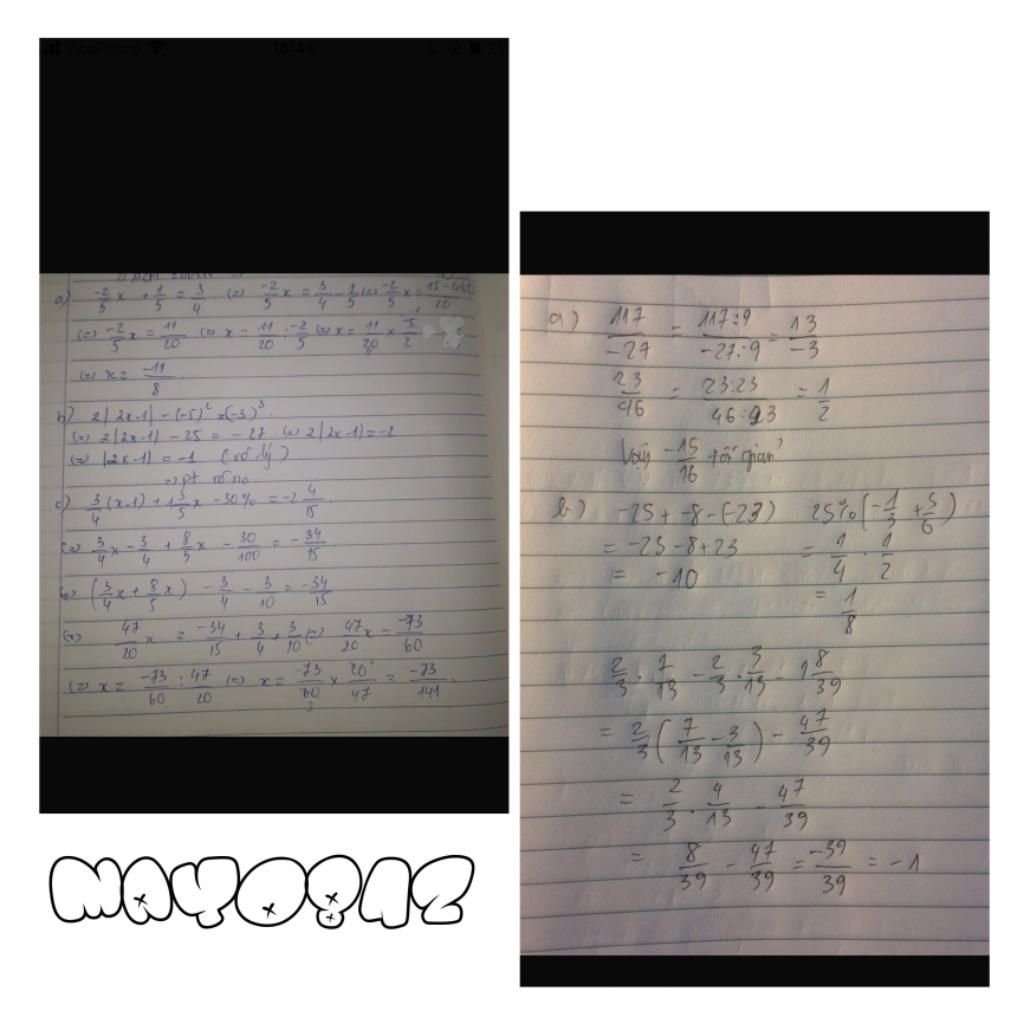 VinaPhone 16:44 21
a) -2/5 x + 1/5 = 3/4 (=) -2/5 x = 3/4 - 1/5 (=) -2/5 x =
(=) -2/5 x = 11/20 (=) x = 11/20 : -2/5 (=) x = 11/20 × -5/2
(=) x = -11/8
b) 2|2x-1| - (-5)² = (-3)³.
(=) 2|2x-1| - 25 = -27 (=) 2|2x-1| = -2
(=) |2x-1| = -1 (vô lý)
=> pt vô no
c) 3/4 (x-1) + 1 3/5 x - 30% = -2 4/15
(=) 3/4 x - 3/4 + 8/5 x - 30/100 = -34/15
(=) (3/4 x + 8/5 x) - 3/4 - 3/10 = -34/15
(=) 47/20 x = -34/15 + 3/4 + 3/10 (=) 47/20 x = -73/60
(=) x = -73/60 : 47/20 (=) x = -73/60 × 20/47 = -73/141.
MAYOSAZ
a) 117/-27 = 117:9/-27:9 = 13/-3
23/46 = 23:23/46:23 = 1/2
Vậy -15/16 tối giản
b) -25 + -8 - (-23) 25% (-1/3 + 5/6)
= -25 - 8 + 23 = 1/4 . 1/2
= -10 = 1/8
2/3 . 7/13 - 2/3 . 3/13 - 1 8/39
= 2/3 (7/13 - 3/13) - 47/39
= 2/3 . 4/13 - 47/39
= 8/39 - 47/39 = -39/39 = -1